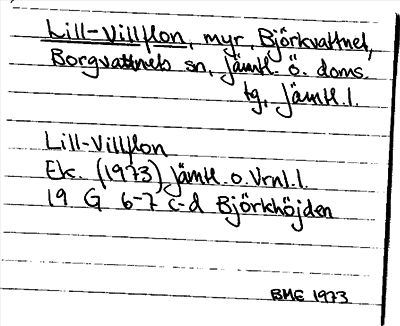 Lill-Villflon, myr, Björkvattnet,
Borgvattnets sn, Jämtl. Ö. doms.
tg, Jämtl. l.
Lill-Villflon
Ek. (1973) Jämtl. o. Vrnl. l.
19 G 6-7 c-d Björkhöjden
BME 1973